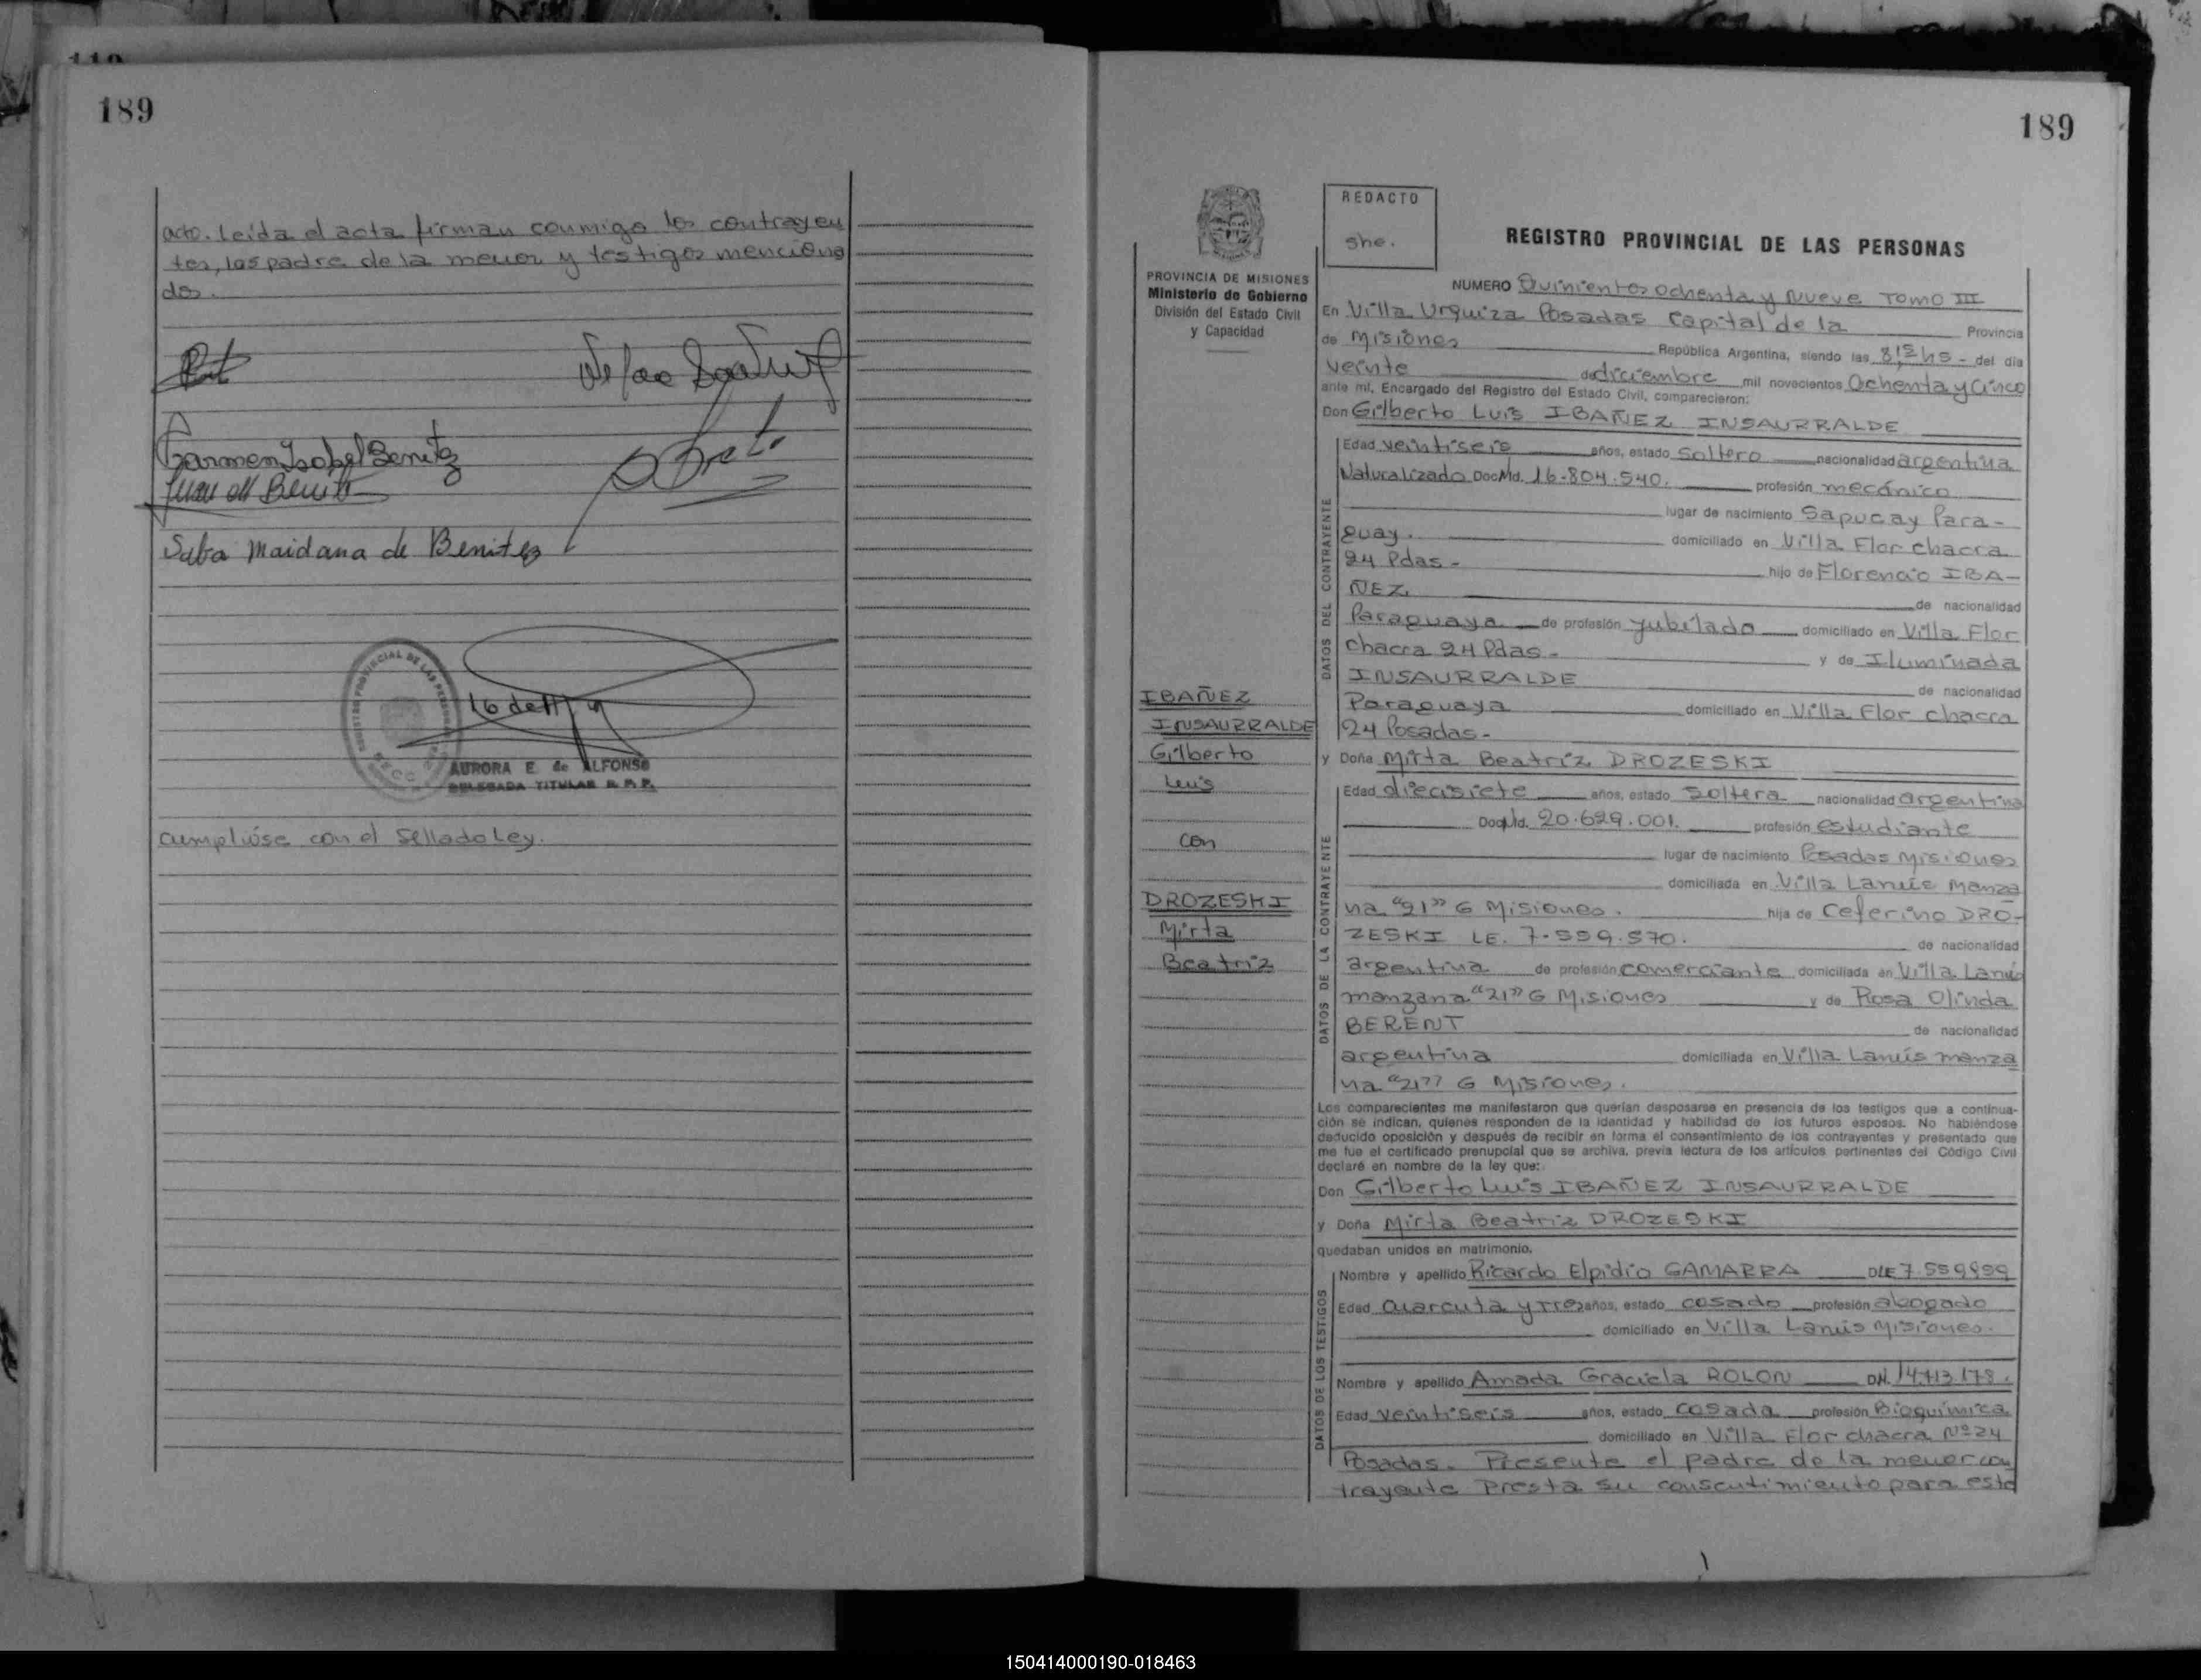 189
acto. leída el acta firman conmigo los contrayen
tes, los padre de la menor y testigos menciona
dos.
Carmen Isabel Benitez
Juan M Benitez
Saba Maidana de Benitez
REGISTRO PROVINCIAL DE LAS PERSONAS
AURORA E. de ALFONSO
DELEGADA TITULAR R. P. P.
cumplióse con el Sellado Ley.
189
PROVINCIA DE MISIONES
Ministerio de Gobierno
División del Estado Civil
y Capacidad
IBAÑEZ
INSAURRALDE
Gilberto
Luis
con
DROZESKI
Mirta
Beatriz
REDACTO
she.
REGISTRO PROVINCIAL DE LAS PERSONAS
NUMERO Quinientos ochenta y Nueve TOMO III
En Villa Urquiza Posadas Capital de la Provincia
de Misiones República Argentina, siendo las 8,15 hs - del día
veinte de diciembre mil novecientos Ochenta y Cinco
ante mí, Encargado del Registro del Estado Civil, comparecieron:
Don Gilberto Luis IBAÑEZ INSAURRALDE
DATOS DEL CONTRAYENTE
Edad veintiseis años, estado soltero nacionalidad argentina
Naturalizado Doc Nd. 16.804.540. profesión mecánico
lugar de nacimiento Sapucay Para-
guay. domiciliado en Villa Flor chacra
24 Pdas- hijo de Florencio IBA-
ÑEZ. de nacionalidad
Paraguaya de profesión jubilado domiciliado en Villa Flor
chacra 24 Pdas- y de Iluminada
INSAURRALDE de nacionalidad
Paraguaya domiciliado en Villa Flor chacra
24 Posadas-
y Doña Mirta Beatriz DROZESKI
DATOS DE LA CONTRAYENTE
Edad diecisiete años, estado soltera nacionalidad argentina
Doc Nd. 20.629.001. profesión estudiante
lugar de nacimiento Posadas Misiones
domiciliada en Villa Lanús Manza
na "21" G Misiones. hija de Ceferino DRO-
ZESKI LE. 7.559.570. de nacionalidad
argentina de profesión comerciante domiciliada en Villa Lanús
manzana "21" G Misiones y de Rosa Olinda
BERENT de nacionalidad
argentina domiciliada en Villa Lanús manza
na "21" G Misiones.
Los comparecientes me manifestaron que querían desposarse en presencia de los testigos que a continua-
ción se indican, quienes responden de la identidad y habilidad de los futuros esposos. No habiéndose
deducido oposición y después de recibir en forma el consentimiento de los contrayentes y presentado que
me fue el certificado prenupcial que se archiva, previa lectura de los artículos pertinentes del Código Civil
declaré en nombre de la ley que:
Don Gilberto Luis IBAÑEZ INSAURRALDE
y Doña Mirta Beatriz DROZESKI
quedaban unidos en matrimonio.
DATOS DE LOS TESTIGOS
Nombre y apellido Ricardo Elpidio GAMARRA DLE 7.559859
Edad cuarenta y tres años, estado casado profesión abogado
domiciliado en Villa Lanús Misiones.
Nombre y apellido Amada Graciela ROLON DN. 14.713.178.
Edad veintiseis años, estado casada profesión Bioquímica
domiciliado en Villa Flor chacra Nº 24
Posadas. Presente el padre de la menor con
trayente Presta su consentimiento para este
150414000190-018463